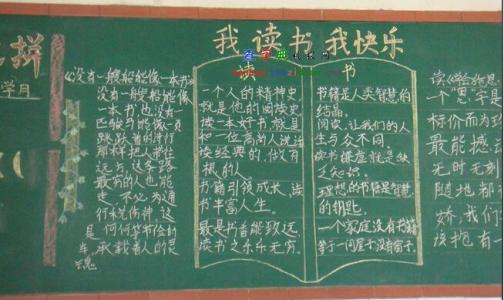 我读书 我快乐
学月
《没有一艘船能像一本书》
没有一艘船能像
一本书，也没有一
匹骏马能像一页
跳跃着的诗行
那样把人带往
远方，这条路
最穷的人也能
走，不必为通
行税伤神，这
是何等节俭的
车，承载着人的灵
魂
读
一个人的精神史
就是他的阅读史
读一本好书，就是
和一位高尚人谈话
读经典的，做有
根的人。
书籍引领成长，读
书丰富人生。
最是书香能致远，
读书之乐乐无穷。
书
书籍是人类智慧的
结晶。
阅读，让我们的人
生与众不同。
读书
理想的书籍是智慧
的钥匙。
一个家庭没有书籍
等于一间屋子没有窗子。
读
一个
标价而为
最能撼
无时无刻
随地都
娇，我们
该抱有